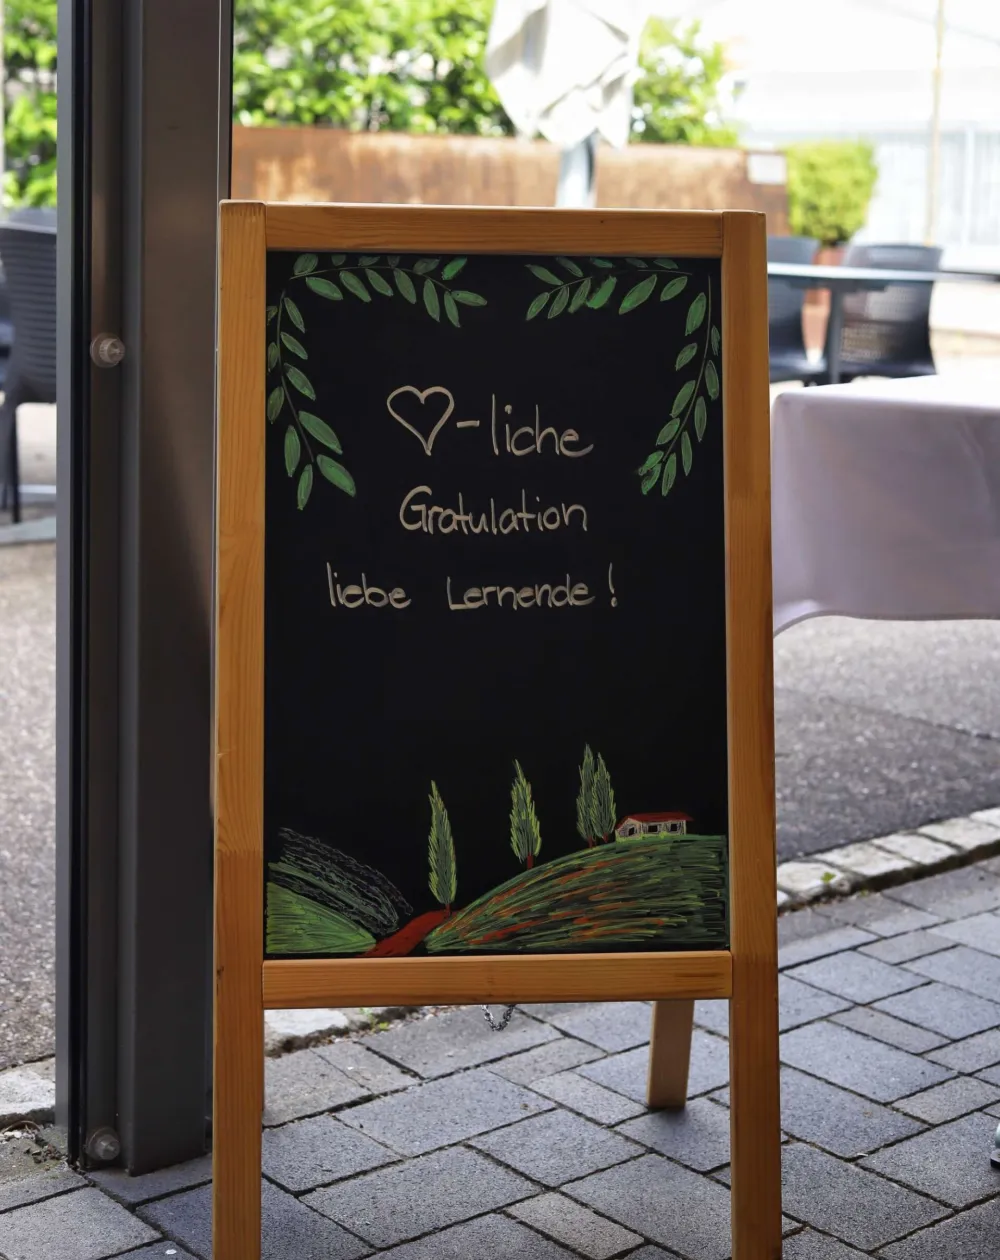 ♡-liche
Gratulation
liebe Lernende!